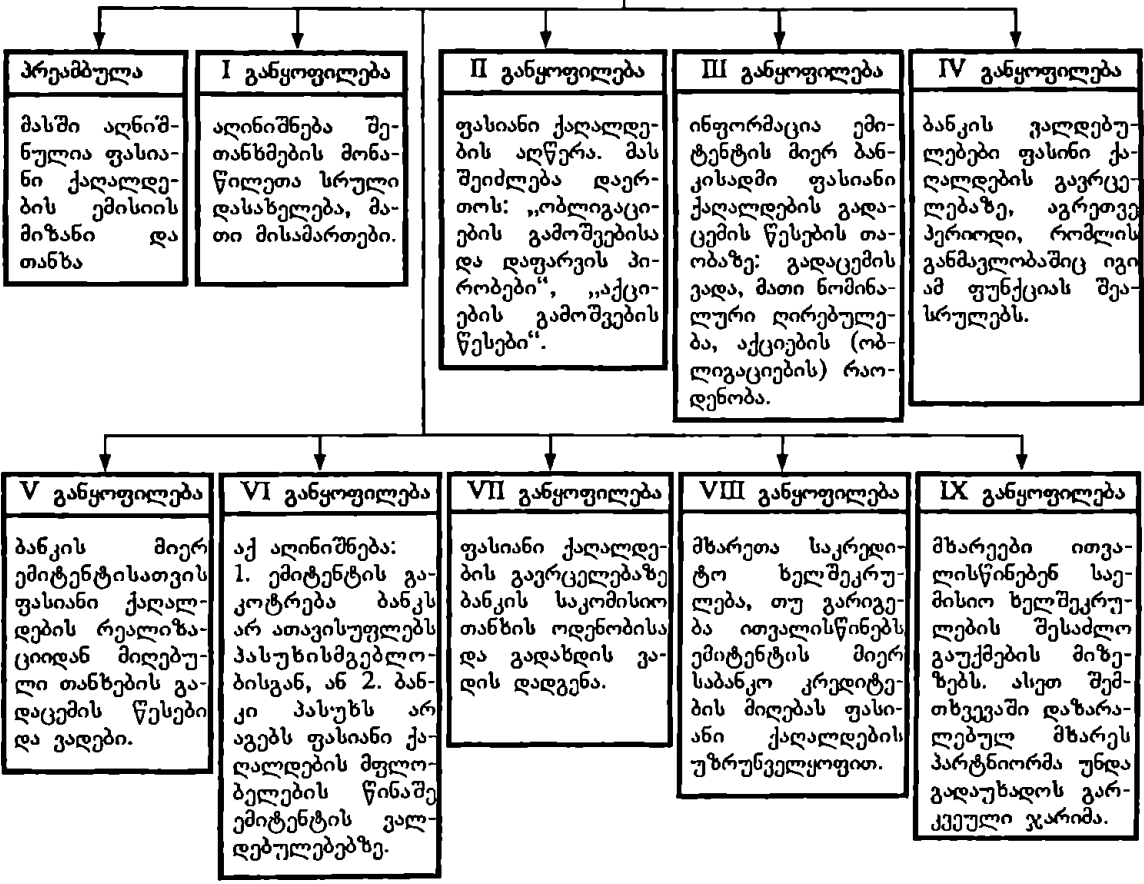 პრეამბულა
მასში აღნიშ-
ნულია ფასია-
ნი ქაღალდე-
ბის ემისიის
მიზანი და
თანხა
I განყოფილება
აღინიშნება შე-
თანხმების მონა-
წილეთა სრული
დასახელება, მა-
თი მისამართები.
II განყოფილება
ფასიანი ქაღალდე-
ბის აღწერა. მას
შეიძლება დაერ-
თოს: „ობლიგაცი-
ების გამოშვებისა
და დაფარვის პი-
რობები“, „აქცი-
ების გამოშვების
წესები“.
III განყოფილება
ინფორმაცია ემი-
ტენტის მიერ ბან-
კისადმი ფასიანი
ქაღალდების გადა-
ცემის წესების თა-
ობაზე: გადაცემის
ვადა, მათი ნომინა-
ლური ღირებულე-
ბა, აქციების (ობ-
ლიგაციების) რაო-
დენობა.
IV განყოფილება
ბანკის ვალდებუ-
ლებები ფასინი ქა-
ღალდების გავრცე-
ლებაზე, აგრეთვე
პერიოდი, რომლის
განმავლობაშიც იგი
ამ ფუნქციას შეა-
სრულებს.
V განყოფილება
ბანკის მიერ
ემიტენტისათვის
ფასიანი ქაღალ-
დების რეალიზა-
ციიდან მიღებუ-
ლი თანხების გა-
დაცემის წესები
და ვადები.
VI განყოფილება
აქ აღინიშნება:
1. ემიტენტის გა-
კოტრება ბანკს
არ ათავისუფლებს
პასუხისმგებლო-
ბისგან, ან 2. ბან-
კი პასუხს არ
აგებს ფასიანი ქა-
ღალდების მფლო-
ბელების წინაშე
ემიტენტის ვალ-
დებულებებზე.
VII განყოფილება
ფასიანი ქაღალდე-
ბის გავრცელებაზე
ბანკის საკომისიო
თანხის ოდენობისა
და გადახდის ვა-
დის დადგენა.
VIII განყოფილება
მხარეთა საკრედი-
ტო ხელშეკრუ-
ლება, თუ გარიგე-
ბა ითვალისწინებს
ემიტენტის მიერ
საბანკო კრედიტე-
ბის მიღებას ფასი-
ანი ქაღალდების
უზრუნველყოფით.
IX განყოფილება
მხარეები ითვა-
ლისწინებენ საე-
მისიო ხელშეკრუ-
ლების შესაძლო
გაუქმების მიზე-
ზებს. ასეთ შემ-
თხვევაში დაზარა-
ლებულ მხარეს
პარტნიორმა უნდა
გადაუხადოს გარ-
კვეული ჯარიმა.